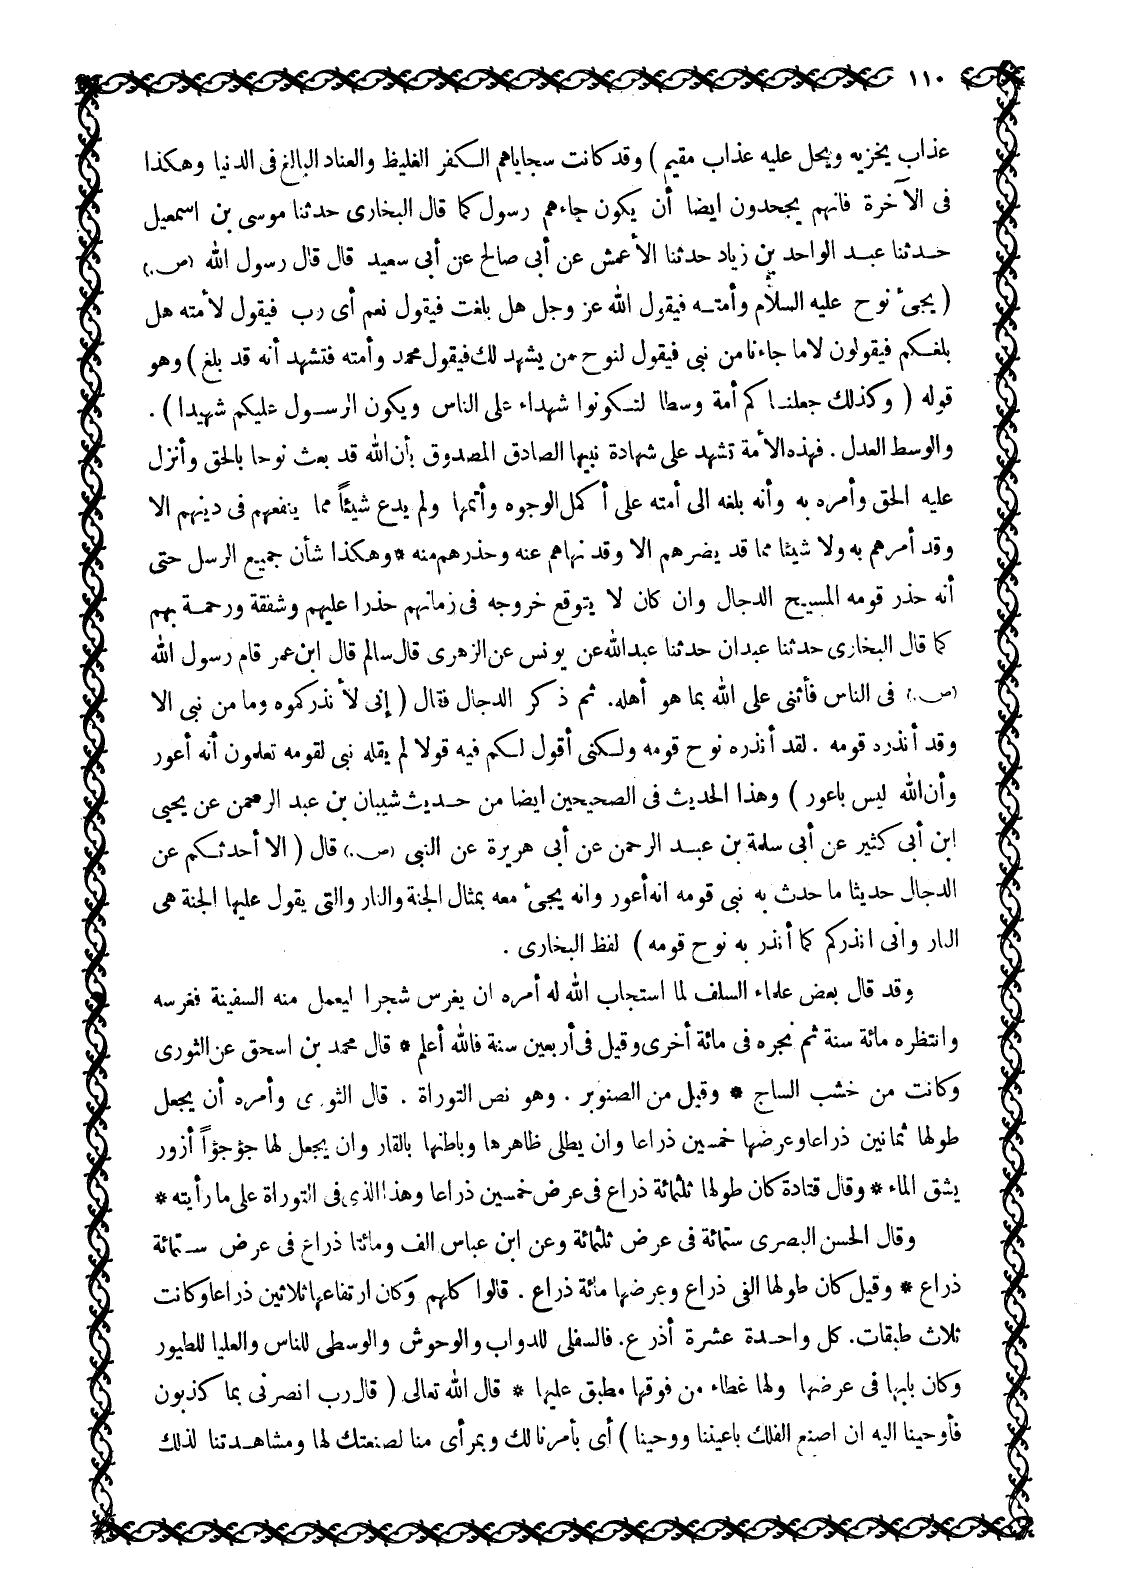 ١١٠
عذاب يخزيه ويحل عليه عذاب مقيم ) وقد كانت سجاياهم الكفر الغليظ والعناد البالغ فى الدنيا وهكذا
فى الآخرة فانهم يجحدون ايضا أن يكون جاءهم رسول كما قال البخارى حدثنا موسى بن اسمعيل
حدثنا عبد الواحد بن زياد حدثنا الأعمش عن أبى صالح عن أبى سعيد قال قال رسول الله (ص.)
( يجئ نوح عليه السلام وأمته فيقول الله عز وجل هل بلغت فيقول نعم أى رب فيقول لأمته هل
بلغكم فيقولون لا ما جاءنا من نبى فيقول لنوح من يشهد لك فيقول محمد وأمته فتشهد أنه قد بلغ ) وهو
قوله ( وكذلك جعلناكم أمة وسطا لتكونوا شهداء على الناس ويكون الرسول عليكم شهيدا ) .
والوسط العدل . فهذه الأمة تشهد على شهادة نبيها الصادق المصدوق بأن الله قد بعث نوحا بالحق وأنزل
عليه الحق وأمره به وأنه بلغه الى أمته على أكمل الوجوه وأتمها ولم يدع شيئاً مما ينفعهم فى دينهم الا
وقد أمرهم به ولا شيئا مما قد يضرهم الا وقد نهاهم عنه وحذرهم منه * وهكذا شأن جميع الرسل حتى
أنه حذر قومه المسيح الدجال وان كان لا يتوقع خروجه فى زمانهم حذرا عليهم وشفقة ورحمة بهم
كما قال البخارى حدثنا عبدان حدثنا عبد الله عن يونس عن الزهرى قال سالم قال ابن عمر قام رسول الله
(ص.) فى الناس فأثنى على الله بما هو أهله. ثم ذكر الدجال فقال ( إنى لأنذركموه وما من نبى الا
وقد أنذره قومه . لقد أنذره نوح قومه ولكنى أقول لكم فيه قولا لم يقله نبى لقومه تعلمون أنه أعور
وأن الله ليس باعور ) وهذا الحديث فى الصحيحين ايضا من حديث شيبان بن عبد الرحمن عن يحيى
ابن أبى كثير عن أبى سلمة بن عبد الرحمن عن أبى هريرة عن النبى (ص.) قال ( الا أحدثكم عن
الدجال حديثا ما حدث به نبى قومه انه أعور وانه يجئ معه بمثال الجنة والنار والتى يقول عليها الجنة هى
النار وانى انذركم كما أنذر به نوح قومه ) لفظ البخارى .
وقد قال بعض علماء السلف لما استجاب الله له أمره ان يغرس شجرا ليعمل منه السفينة فغرسه
وانتظره مائة سنة ثم نجره فى مائة أخرى وقيل فى أربعين سنة فالله أعلم * قال محمد بن اسحق عن الثورى
وكانت من خشب الساج * وقيل من الصنوبر . وهو نص التوراة . قال الثورى وأمره أن يجعل
طولها ثمانين ذراعا وعرضها خمسين ذراعا وان يطلى ظاهرها وباطنها بالقار وان يجعل لها جؤجؤاً أزور
يشق الماء * وقال قتادة كان طولها ثلثمائة ذراع فى عرض خمسين ذراعا وهذا الذى فى التوراة على ما رأيته *
وقال الحسن البصرى ستمائة فى عرض ثلثمائة وعن ابن عباس الف ومائتا ذراع فى عرض ستمائة
ذراع * وقيل كان طولها الفى ذراع وعرضها مائة ذراع . قالوا كلهم وكان ارتفاعها ثلاثين ذراعا وكانت
ثلاث طبقات. كل واحدة عشرة أذرع. فالسفلى للدواب والوحوش والوسطى للناس والعليا للطيور
وكان بابها فى عرضها ولها غطاء من فوقها مطبق عليها * قال الله تعالى ( قال رب انصرنى بما كذبون
فأوحينا اليه ان اصنع الفلك باعيننا ووحينا ) أى بأمرنا لك وبمرأى منا لصنعتك لها ومشاهدتنا لذلك